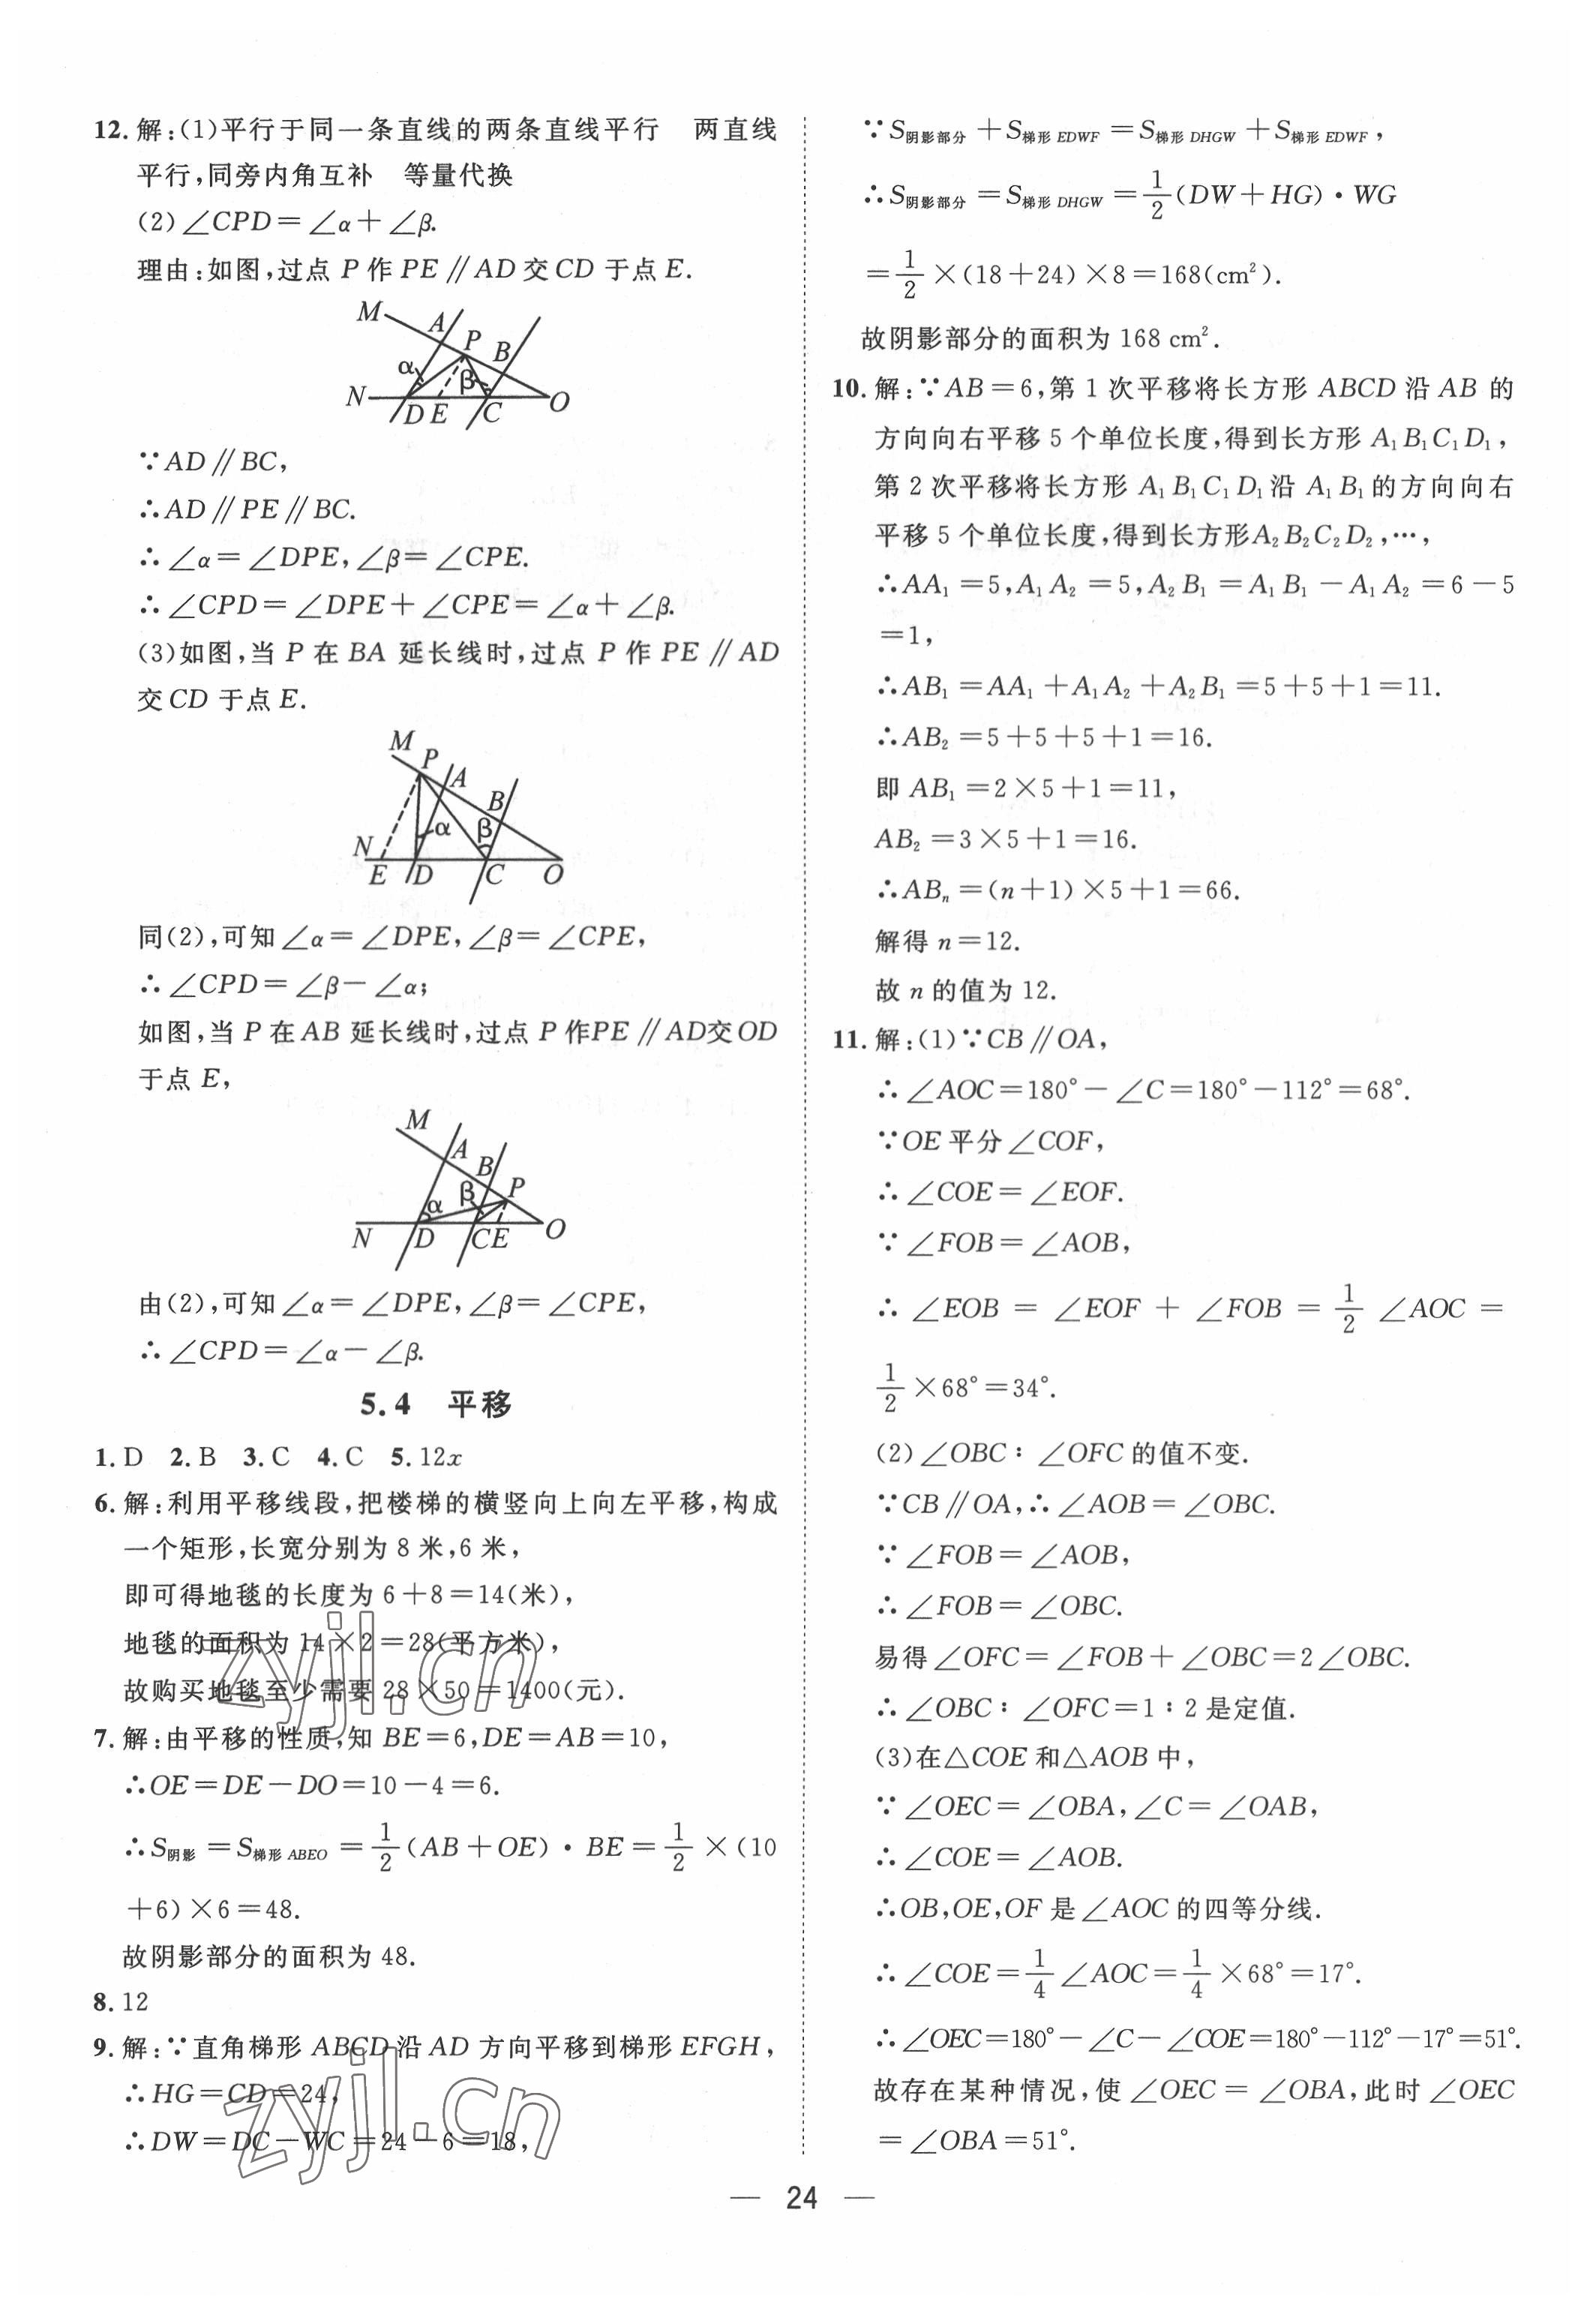 12. 解:(1)平行于同一条直线的两条直线平行　两直线
平行,同旁内角互补　等量代换
(2)∠CPD=∠α+∠β.
理由:如图,过点 P 作 PE∥AD 交 CD 于点 E.
M A P B α β N D E C O
∵AD∥BC,
∴AD∥PE∥BC.
∴∠α=∠DPE,∠β=∠CPE.
∴∠CPD=∠DPE+∠CPE=∠α+∠β.
(3)如图,当 P 在 BA 延长线时,过点 P 作 PE∥AD
交 CD 于点 E.
M P A B α β N E D C O
同(2),可知∠α=∠DPE,∠β=∠CPE,
∴∠CPD=∠β-∠α;
如图,当 P 在 AB 延长线时,过点 P 作PE∥AD交 OD
于点 E,
M A B P α β N D C E O
由(2),可知∠α=∠DPE,∠β=∠CPE,
∴∠CPD=∠α-∠β.
5.4　平移
1. D　2. B　3. C　4. C　5. 12x
6. 解:利用平移线段,把楼梯的横竖向上向左平移,构成
一个矩形,长宽分别为 8 米,6 米,
即可得地毯的长度为 6+8=14(米),
地毯的面积为 14×2=28(平方米),
故购买地毯至少需要 28×50=1400(元).
7. 解:由平移的性质,知 BE=6,DE=AB=10,
∴OE=DE-DO=10-4=6.
∴S阴影=S梯形 ABEO=1/2(AB+OE)·BE=1/2×(10
+6)×6=48.
故阴影部分的面积为 48.
8. 12
9. 解:∵直角梯形 ABCD 沿 AD 方向平移到梯形 EFGH,
∴HG=CD=24,
∴DW=DC-WC=24-6=18,
∵S阴影部分+S梯形 EDWF=S梯形 DHGW+S梯形 EDWF,
∴S阴影部分=S梯形 DHGW=1/2(DW+HG)·WG
=1/2×(18+24)×8=168(cm²).
故阴影部分的面积为 168 cm².
10. 解:∵AB=6,第 1 次平移将长方形 ABCD 沿 AB 的
方向向右平移 5 个单位长度,得到长方形 A₁B₁C₁D₁,
第 2 次平移将长方形 A₁B₁C₁D₁ 沿 A₁B₁ 的方向向右
平移 5 个单位长度,得到长方形A₂B₂C₂D₂,…,
∴AA₁=5,A₁A₂=5,A₂B₁=A₁B₁-A₁A₂=6-5
=1,
∴AB₁=AA₁+A₁A₂+A₂B₁=5+5+1=11.
∴AB₂=5+5+5+1=16.
即 AB₁=2×5+1=11,
AB₂=3×5+1=16.
∴ABₙ=(n+1)×5+1=66.
解得 n=12.
故 n 的值为 12.
11. 解:(1)∵CB∥OA,
∴∠AOC=180°-∠C=180°-112°=68°.
∵OE 平分∠COF,
∴∠COE=∠EOF.
∵∠FOB=∠AOB,
∴∠EOB=∠EOF+∠FOB=1/2∠AOC=
1/2×68°=34°.
(2)∠OBC∶∠OFC 的值不变.
∵CB∥OA,∴∠AOB=∠OBC.
∵∠FOB=∠AOB,
∴∠FOB=∠OBC.
易得∠OFC=∠FOB+∠OBC=2∠OBC.
∴∠OBC∶∠OFC=1∶2 是定值.
(3)在△COE 和△AOB 中,
∵∠OEC=∠OBA,∠C=∠OAB,
∴∠COE=∠AOB.
∴OB,OE,OF 是∠AOC 的四等分线.
∴∠COE=1/4∠AOC=1/4×68°=17°.
∴∠OEC=180°-∠C-∠COE=180°-112°-17°=51°.
故存在某种情况,使∠OEC=∠OBA,此时∠OEC
=∠OBA=51°.
— 24 —
zyjl.cn
zyjl.cn